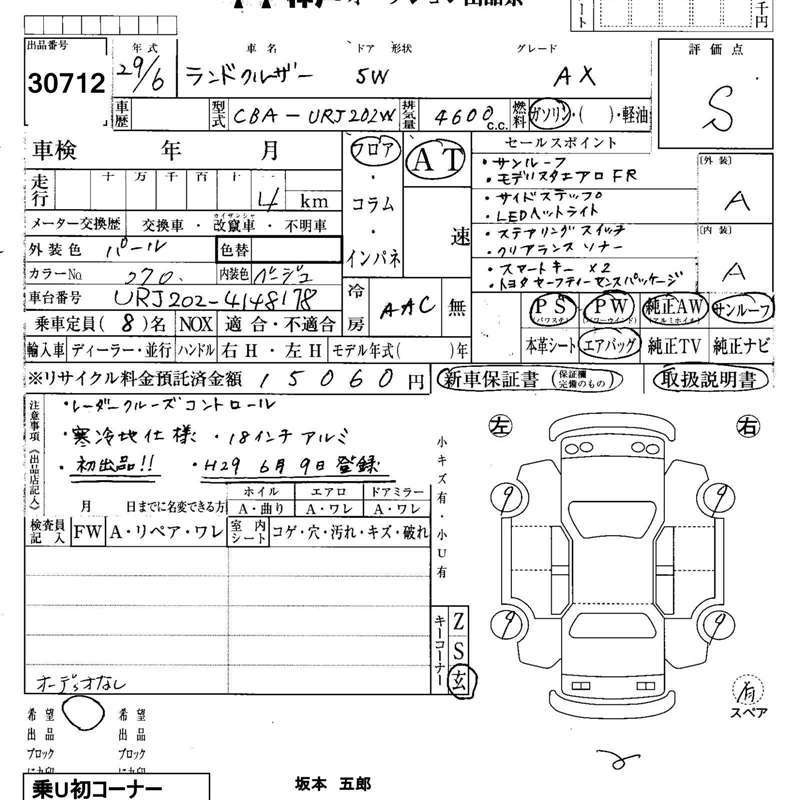 オークション出品票
千円
出品番号 年式 車名 ドア 形状 グレード 評価点
30712 29/6 ランドクルーザー 5W AX S
車歴 型式 CBA-URJ202W 排気量 4600 c.c. 燃料 ガソリン・( )・軽油
車検 年 月 フロア・コラム・インパネ AT 速
セールスポイント
・サンルーフ
・モデリスタエアロ FR
・サイドステップ
・LEDヘットライト
・ステアリングスイッチ
・クリアランスソナー
・スマートキー×2
・トヨタセーフティーセンスパッケージ
[外装] A
[内装] A
走行 十万千百十 4 km
メーター交換歴 交換車・改竄車・不明車
カイザンシャ
外装色 パール 色替
カラーNo 070. 内装色 ベージュ
車台番号 URJ202-4148178
冷房 AAC 無
乗車定員(8)名 NOX 適合・不適合
輸入車 ディーラー・並行 ハンドル 右H・左H モデル年式( )年
PS (パワステ) PW (パワーウインド) 純正AW (アルミホイル) サンルーフ
本革シート エアバッグ 純正TV 純正ナビ
※リサイクル料金預託済金額 15060円 新車保証書(保証欄完備のもの) 取扱説明書
注意事項《出品店記入》
・レーダークルーズコントロール
・寒冷地仕様 ・18インチアルミ
・初出品!! ・H29 6月9日登録
月 日までに名変できる方
ホイル エアロ ドアミラー
A・曲り A・ワレ A・ワレ
検査員記入 FW A・リペア・ワレ 室内シート コゲ・穴・汚れ・キズ・破れ
小キズ有・小U有
左 右
9 9
9 9
キーコーナー Z S 玄
オーディオなし
有
スペア
希望出品ブロック
希望出品ブロック
乗U初コーナー
坂本 五郎